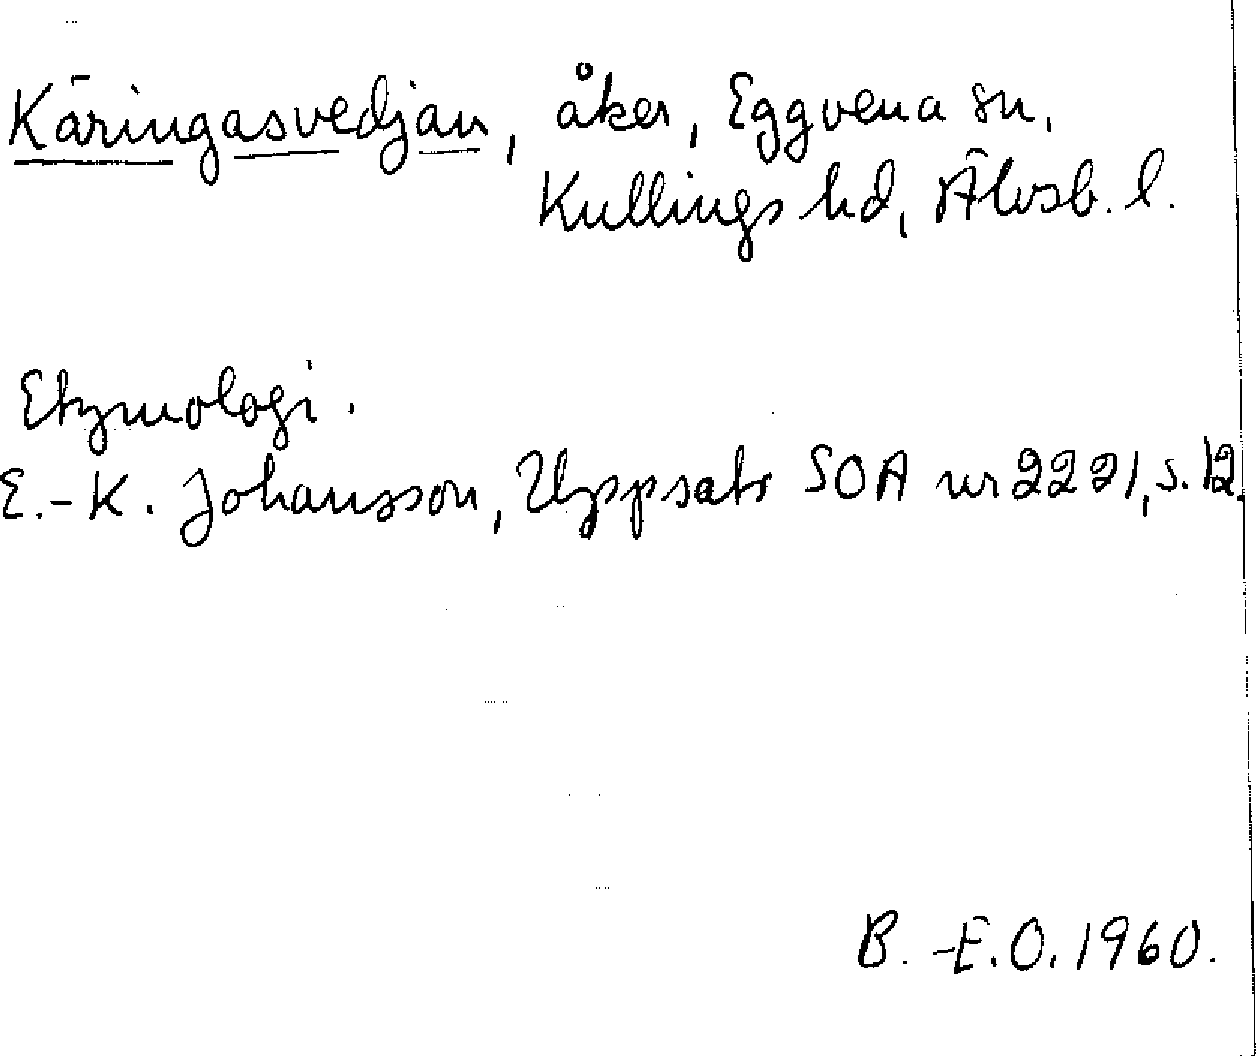 Käringasvedjan, åker, Eggvena sn,
Kullings hd, Älvsb. l.
Etymologi.
E.-K. Johansson, Uppsats SOA nr 2221, s. 12.
B.-E.O. 1960.